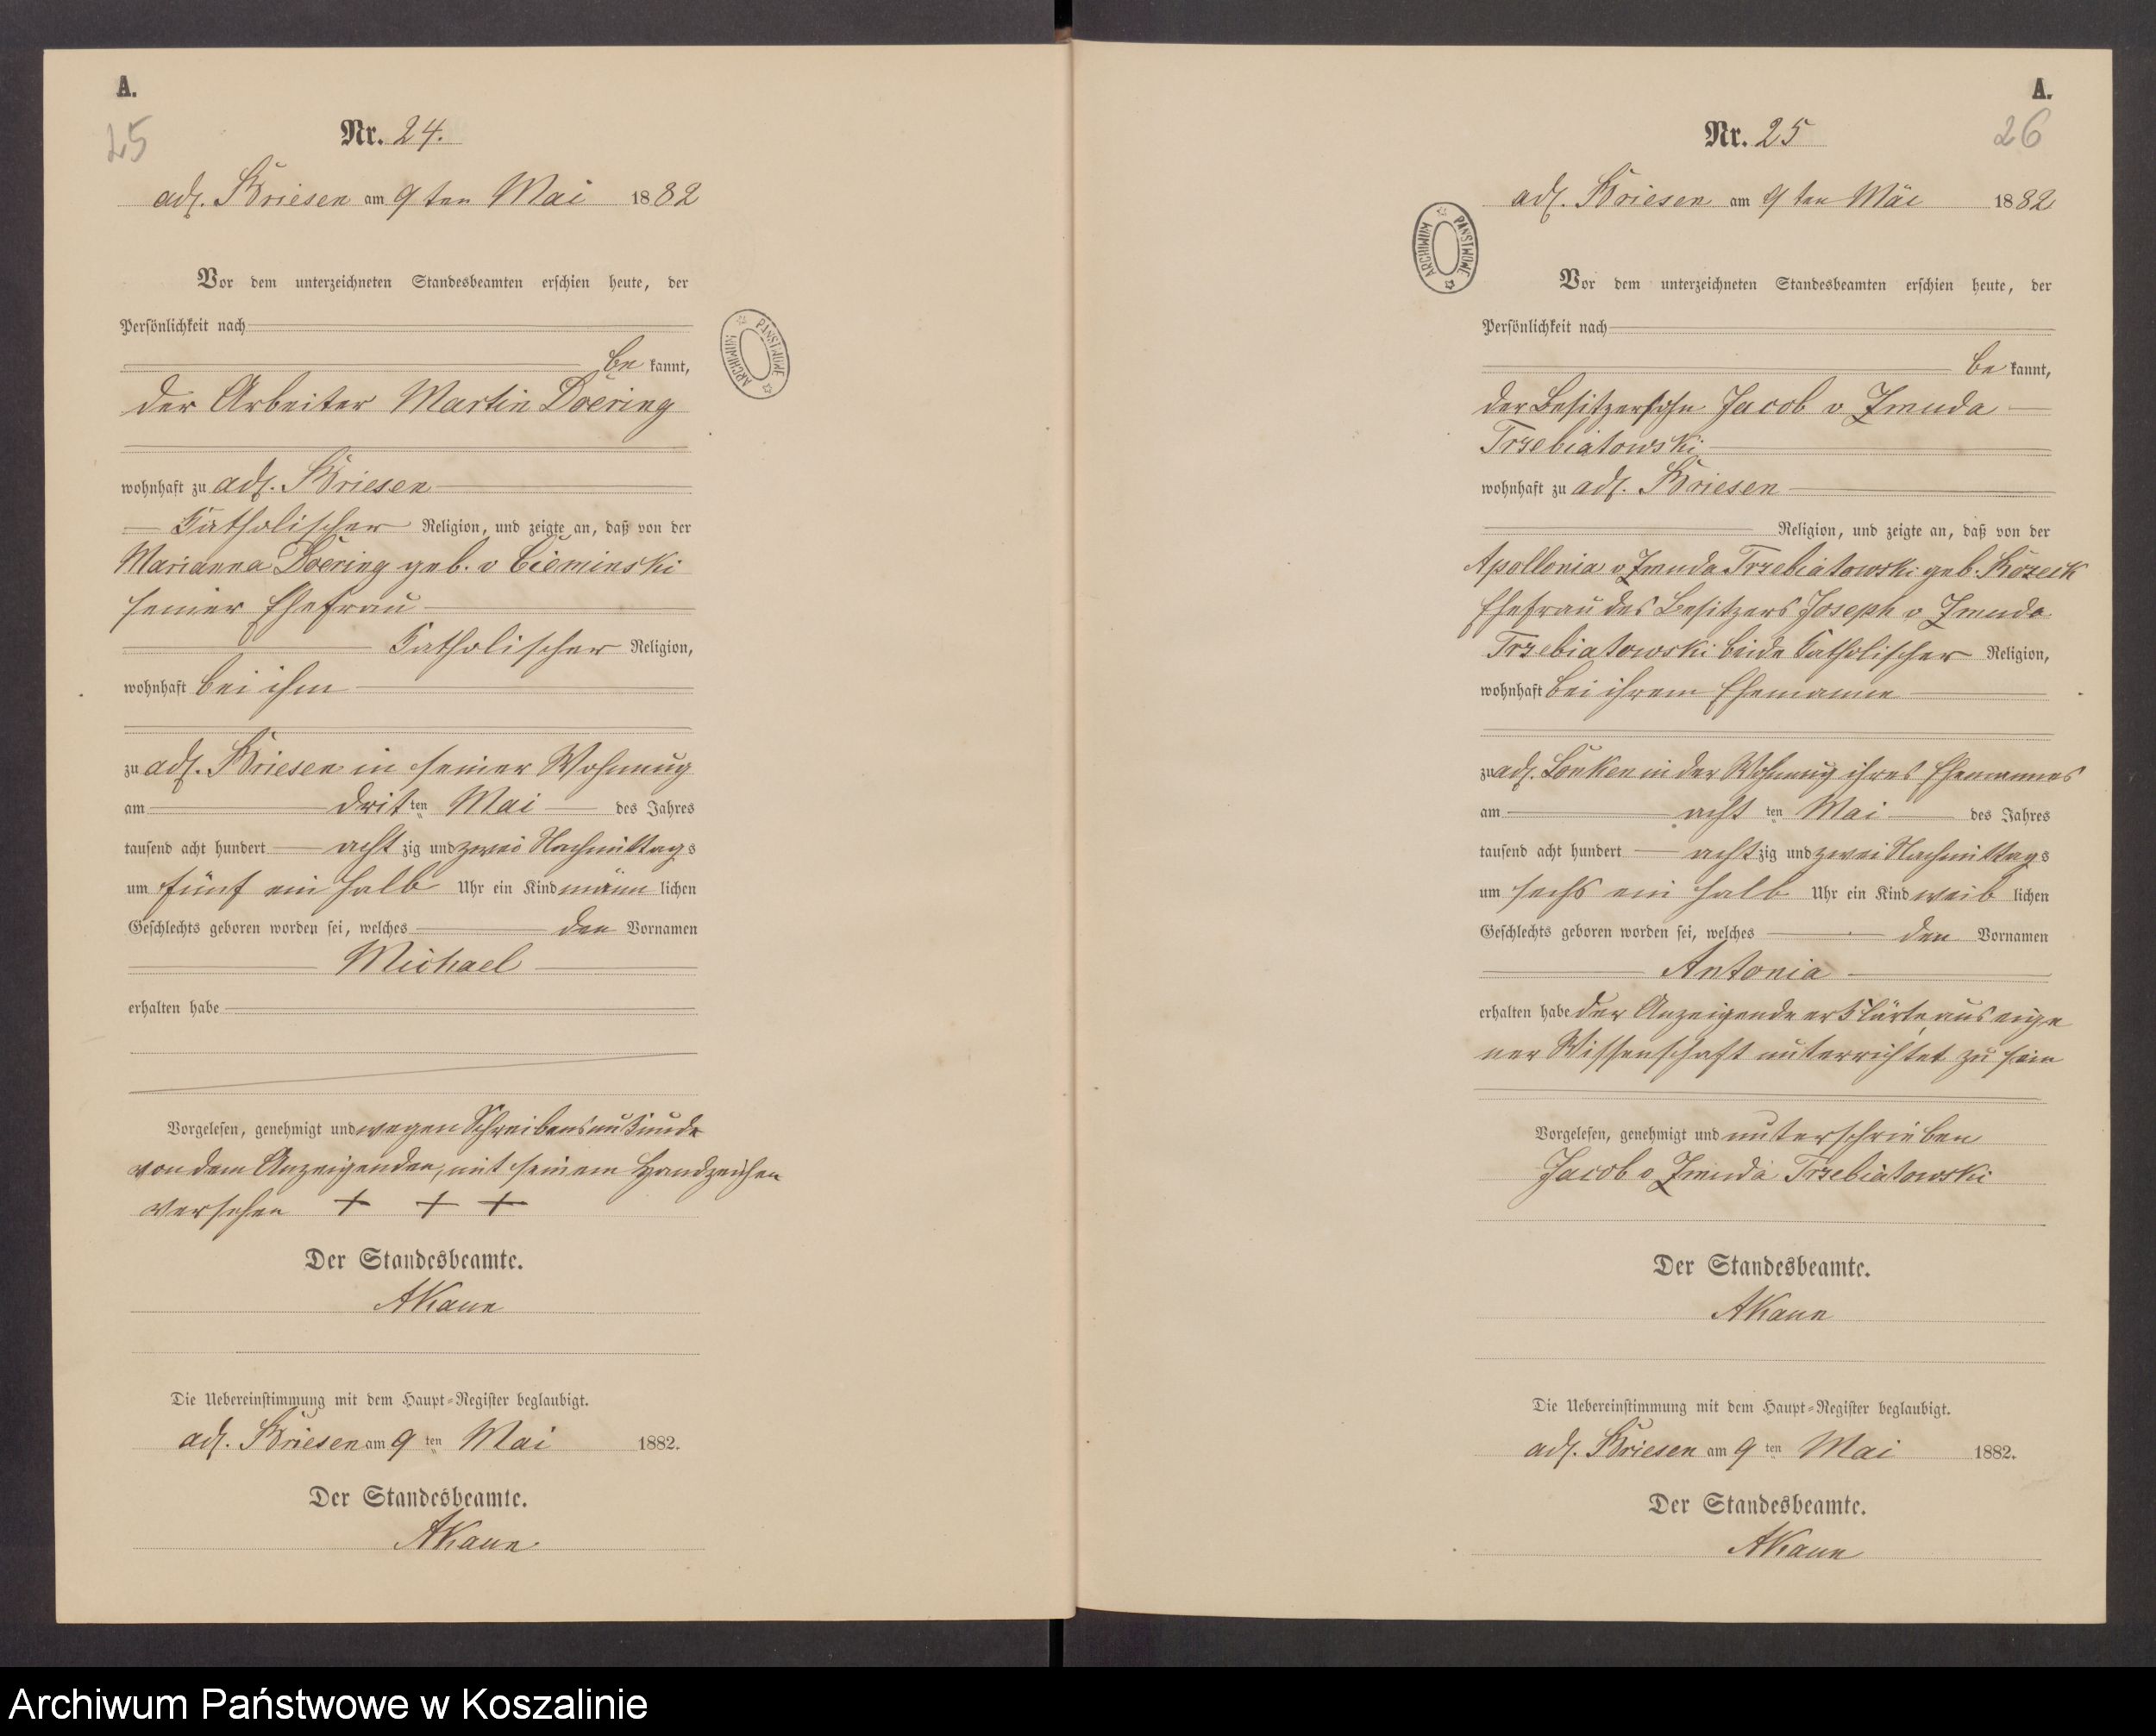 A.
25
Nr. 24.
adl. Briesen am 9 ten Mai 1882
Vor dem unterzeichneten Standesbeamten erschien heute, der
Persönlichkeit nach
be kannt,
der Arbeiter Martin Doering
wohnhaft zu adl. Briesen
Katholischer Religion, und zeigte an, daß von der
Marianna Doering geb. v Cieminski
seiner Ehefrau
Katholischer Religion,
wohnhaft bei ihm
zu adl. Briesen in seiner Wohnung
am drit ten Mai des Jahres
tausend acht hundert acht zig und zwei Nachmittags
um fünf ein halb Uhr ein Kind männ lichen
Geschlechts geboren worden sei, welches den Vornamen
Michael
erhalten habe
Vorgelesen, genehmigt und wegen Schreibensunkunde
von dem Anzeigenden, mit seinem Handzeichen
versehen + + +
Der Standesbeamte.
AKaun
Die Uebereinstimmung mit dem Haupt-Register beglaubigt.
adl. Briesen am 9 ten Mai 1882.
Der Standesbeamte.
AKaun
ARCHIWUM PAŃSTWOWE
A.
26
Nr. 25
adl. Briesen am 9 ten Mai 1882
ARCHIWUM PAŃSTWOWE
Vor dem unterzeichneten Standesbeamten erschien heute, der
Persönlichkeit nach
be kannt,
der Besitzersohn Jacob v Zmuda
Trzebiatowski
wohnhaft zu adl. Briesen
Religion, und zeigte an, daß von der
Apollonia v Zmuda Trzebiatowski geb.
Ehefrau des Besitzers Joseph v Zmuda
Trzebiatowski beide Katholischer Religion,
wohnhaft bei ihrem Ehemanne
zu adl. Lonken in der Wohnung ihres Ehemannes
am acht ten Mai des Jahres
tausend acht hundert acht zig und zwei Nachmittags
um sechs ein halb Uhr ein Kind weib lichen
Geschlechts geboren worden sei, welches den Vornamen
Antonia
erhalten habe der Anzeigende erklärte, aus eige
ner Wissenschaft unterrichtet zu sein
Vorgelesen, genehmigt und unterschrieben
Jacob v Zmuda Trzebiatowski
Der Standesbeamte.
AKaun
Die Uebereinstimmung mit dem Haupt-Register beglaubigt.
adl. Briesen am 9 ten Mai 1882.
Der Standesbeamte.
AKaun
Archiwum Państwowe w Koszalinie